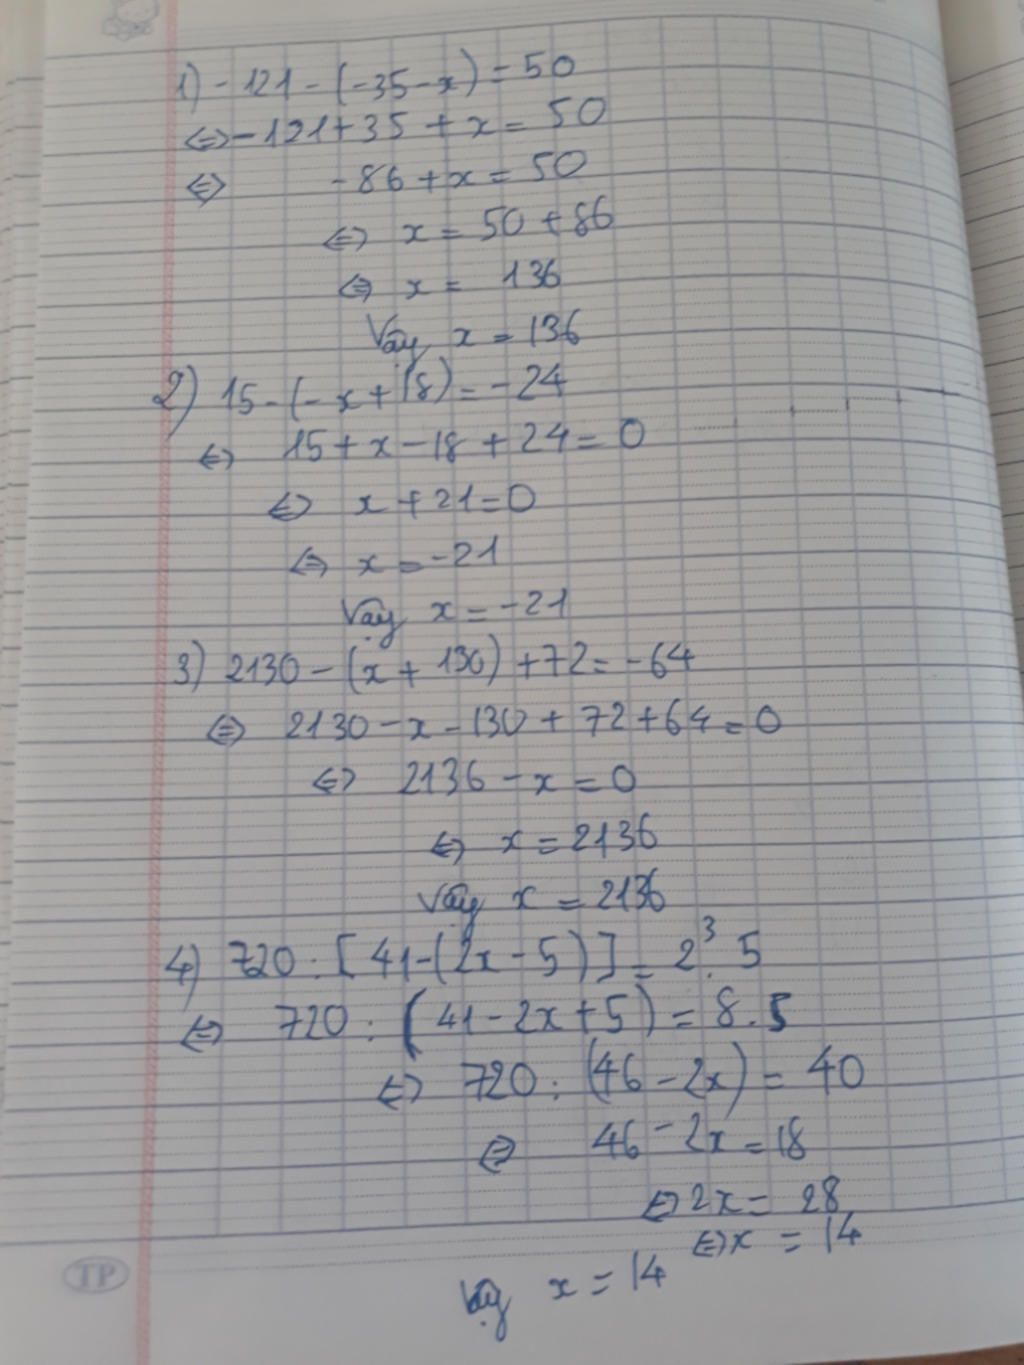 1) -121 - (-35 - x) = 50
⇔ -121 + 35 + x = 50
⇔ -86 + x = 50
⇔ x = 50 + 86
⇔ x = 136
Vậy x = 136
2) 15 - (-x + 18) = -24
⇔ 15 + x - 18 + 24 = 0
⇔ x + 21 = 0
⇔ x = -21
Vậy x = -21
3) 2130 - (x + 130) + 72 = -64
⇔ 2130 - x - 130 + 72 + 64 = 0
⇔ 2136 - x = 0
⇔ x = 2136
Vậy x = 2136
4) 720 : [41 - (2x - 5)] = 2³. 5
⇔ 720 : (41 - 2x + 5) = 8.5
⇔ 720 : (46 - 2x) = 40
⇔ 46 - 2x = 18
⇔ 2x = 28
⇔ x = 14
Vậy x = 14
TP